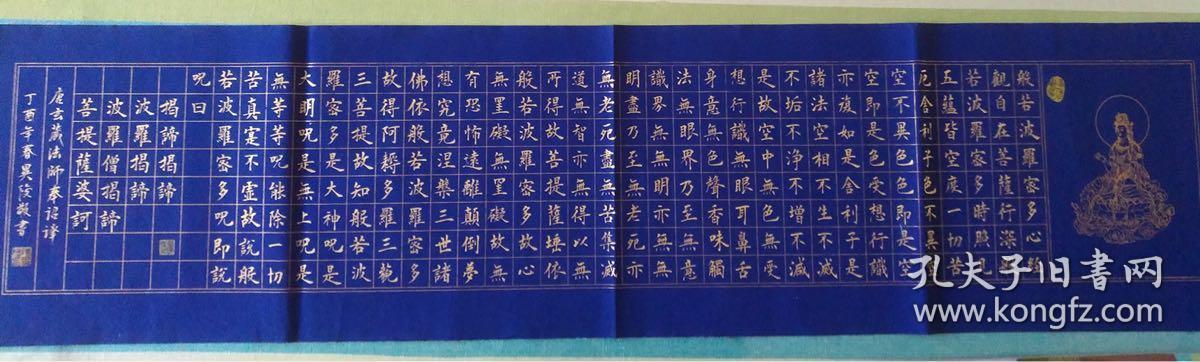 般若波羅蜜多心經
觀自在菩薩行深般
若波羅蜜多時照見
五蘊皆空度一切苦
厄舍利子色不異空
空不異色色即是空
空即是色受想行識
亦復如是舍利子是
諸法空相不生不滅
不垢不淨不增不減
是故空中無色無受
想行識無眼耳鼻舌
身意無色聲香味觸
法無眼界乃至無意
識界無無明亦無無
明盡乃至無老死亦
無老死盡無苦集滅
道無智亦無得以無
所得故菩提薩埵依
般若波羅蜜多故心
無罣礙無罣礙故無
有恐怖遠離顛倒夢
想究竟涅槃三世諸
佛依般若波羅蜜多
故得阿耨多羅三藐
三菩提故知般若波
羅蜜多是大神呪是
大明呪是無上呪是
無等等呪能除一切
苦真實不虛故說般
若波羅蜜多呪即說
呪曰
揭諦揭諦
波羅揭諦
波羅僧揭諦
菩提薩婆訶
唐玄奘法師奉詔譯
丁酉年春吳陵敬書
孔夫子旧书网
www.kongfz.com